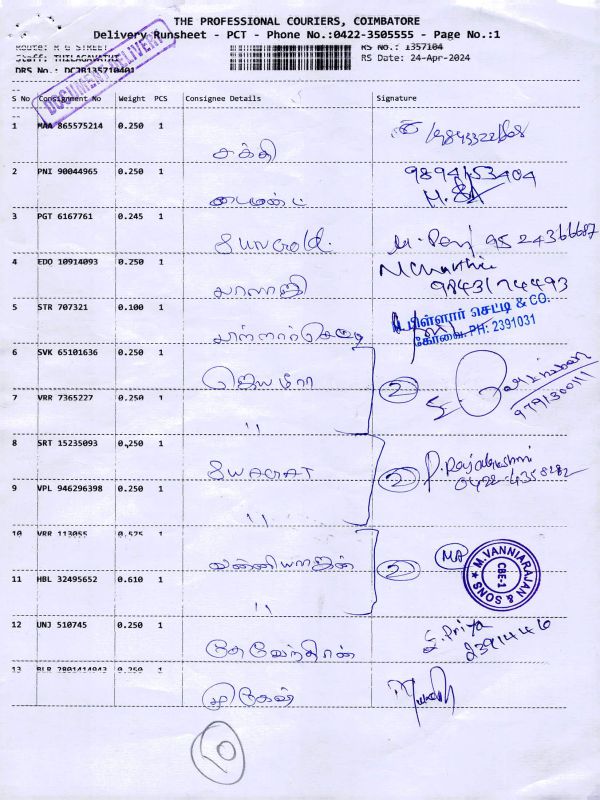 THE PROFESSIONAL COURIERS, COIMBATORE
Delivery Runsheet - PCT - Phone No.:0422-3505555 - Page No.:1
Route: R G STREET RS No.: 1357104
Staff: THILAGAVATHI RS Date: 24-Apr-2024
DRS No.: DCJB135710401
DOCUMENT DELIVERY
S No Consignment No Weight PCS Consignee Details Signature
1 MAA 865575214 0.250 1
சக்தி
2 PNI 90044965 0.250 1 9894153404
3 PGT 6167761 0.245 1
9524366687
4 EDO 10914093 0.250 1
பாலாஜி 9843174493
5 STR 707321 0.100 1 பிள்ளார் செட்டி & CO.
கோவை. PH: 2391031
6 SVK 65101636 0.250 1
ஜெயமீரா 2
9791300111
7 VRR 7365227 0.250 1
"
8 SRT 15235093 0.250 1
2 P. Rajalakshmi
0422-4358282
9 VPL 946296398 0.250 1
"
10 VRR 113055 0.525 1
வன்னியராஜன் 2 MA
M.VANNIARAJAN & SONS CBE-1
11 HBL 32495652 0.610 1
"
12 UNJ 510745 0.250 1 S. Priya
2391446
13 BLR 2801414943 0.250 1
முருகேஷ்